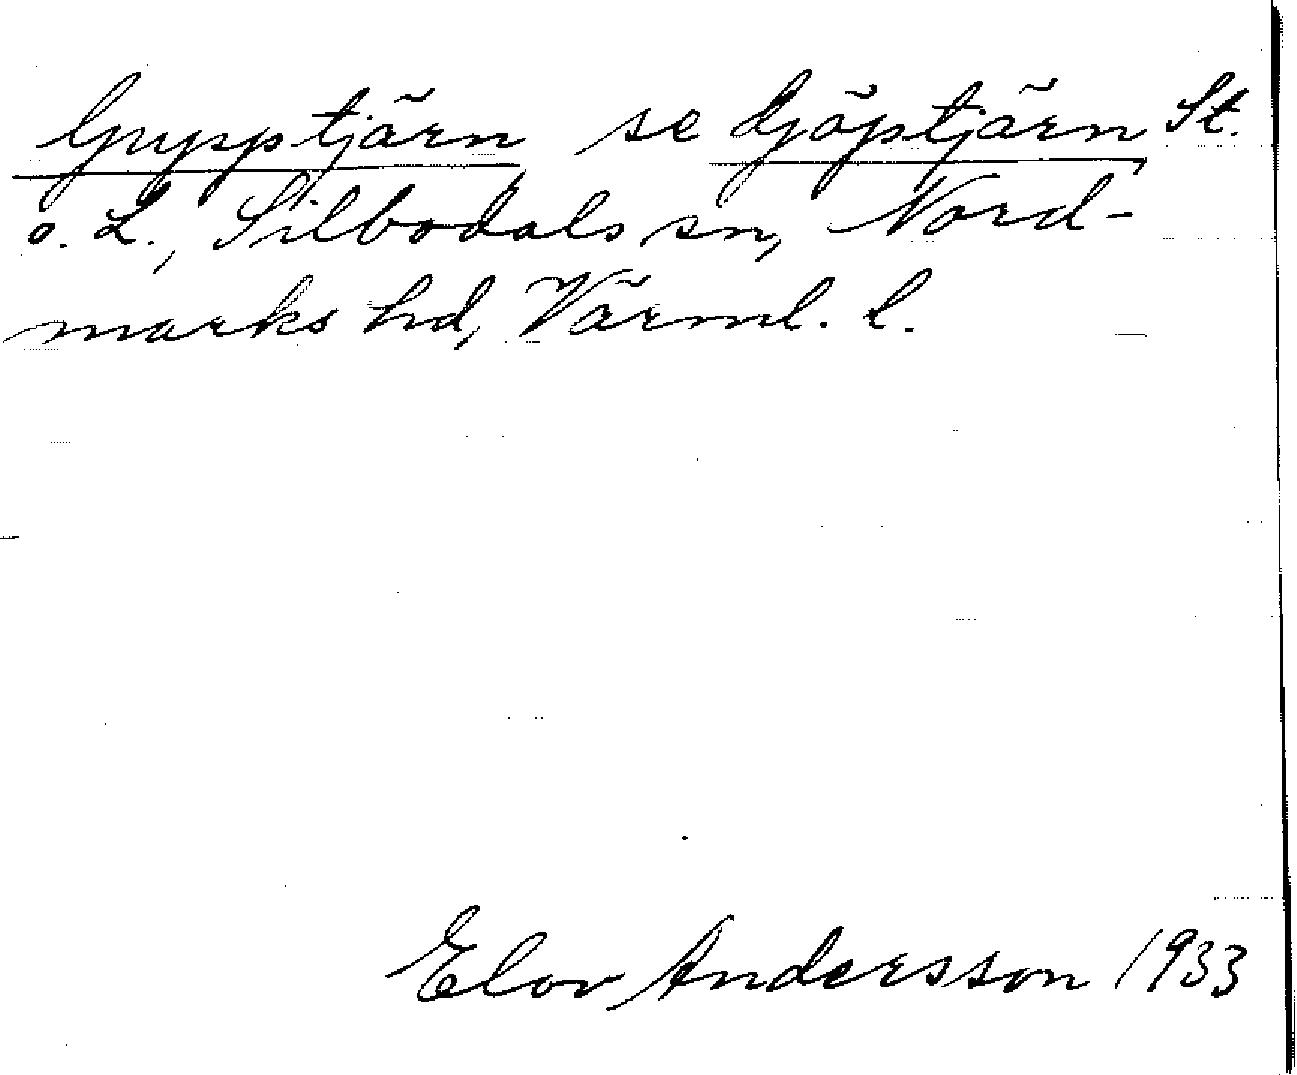 Grypptjärn se Djöptjärn, St.
o. L., Silbodals sn, Nord-
marks hd, Värml. l.
Elov Andersson 1933